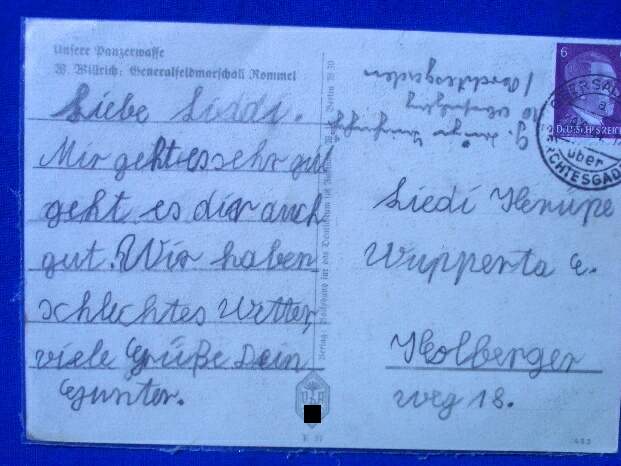 Unsere Panzerwaffe
W. Willrich: Generalfeldmarschall Rommel
Liebe Liddi.
Mir geht es sehr gut
geht es dir auch
gut. Wir haben
schlechtes Wetter,
viele Grüße Dein
Gunter.
Verlag: Volksbund für das Deutschtum im Ausland
Berlin W 30
VDA
6
DEUTSCHES REICH
über
Liedi Henupe
Wupperta E.
Kolberger
weg 18.